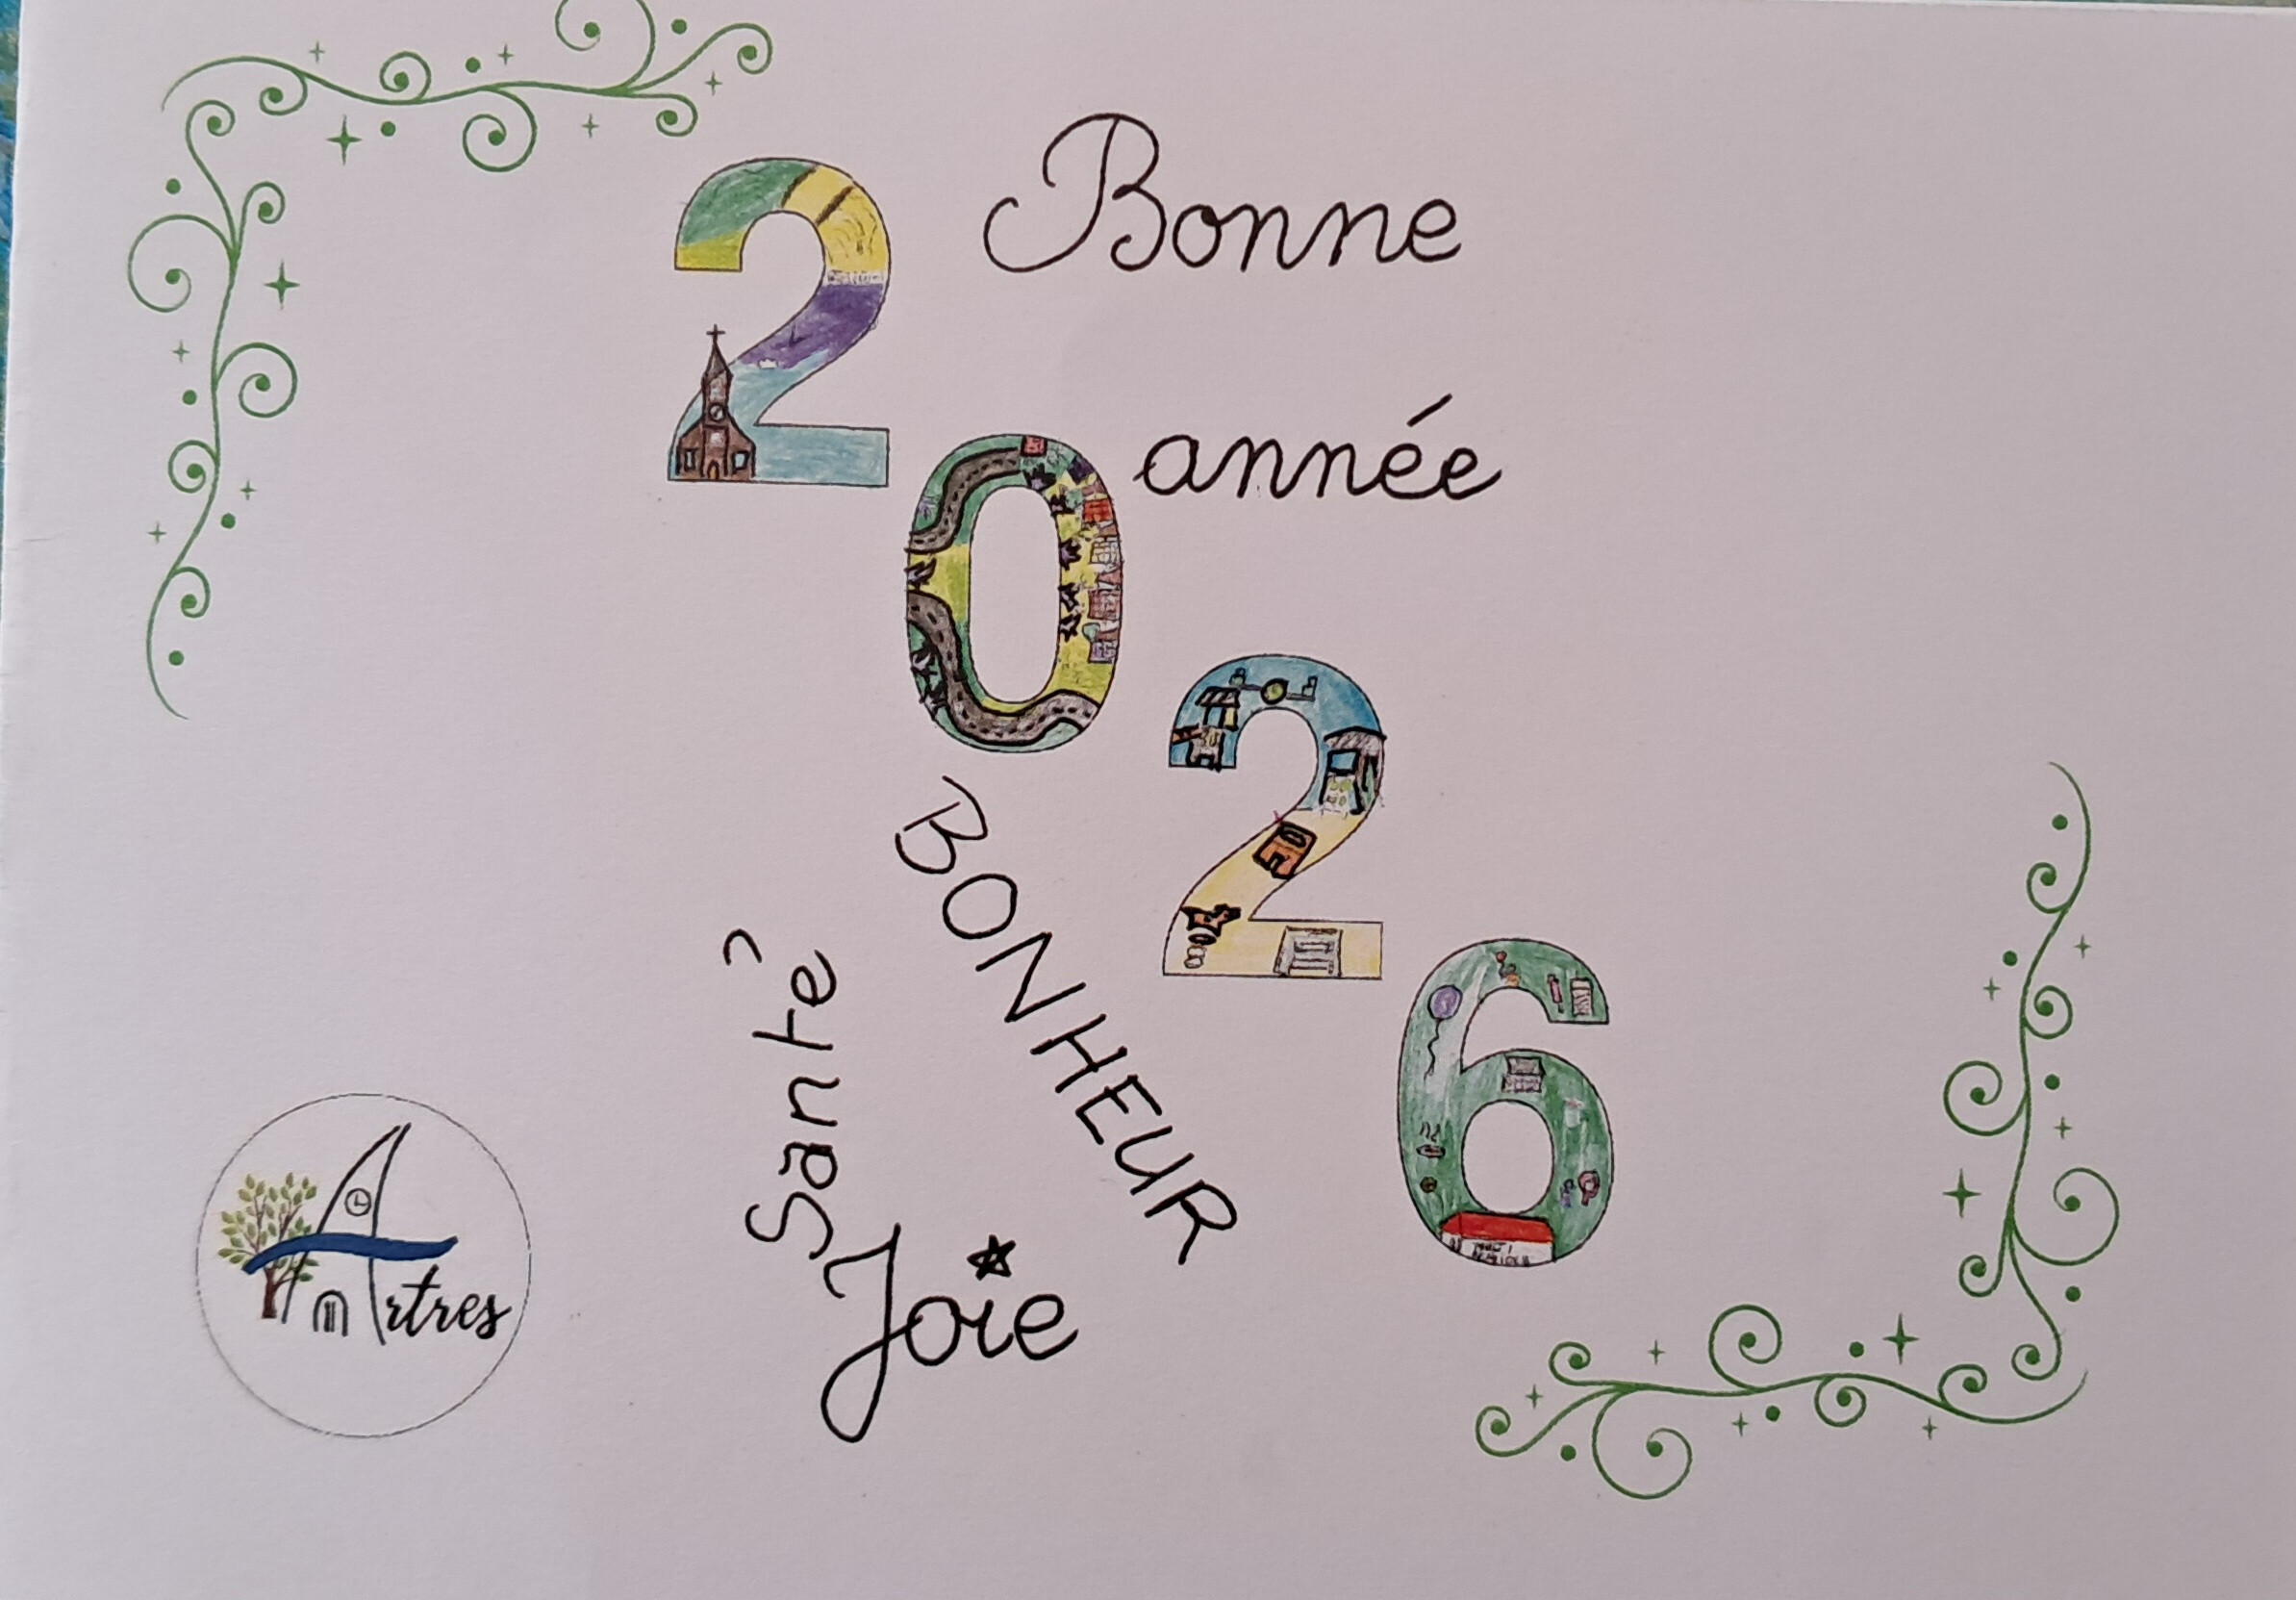 Bonne
année
2026
BONHEUR
Santé
Joie
Artres